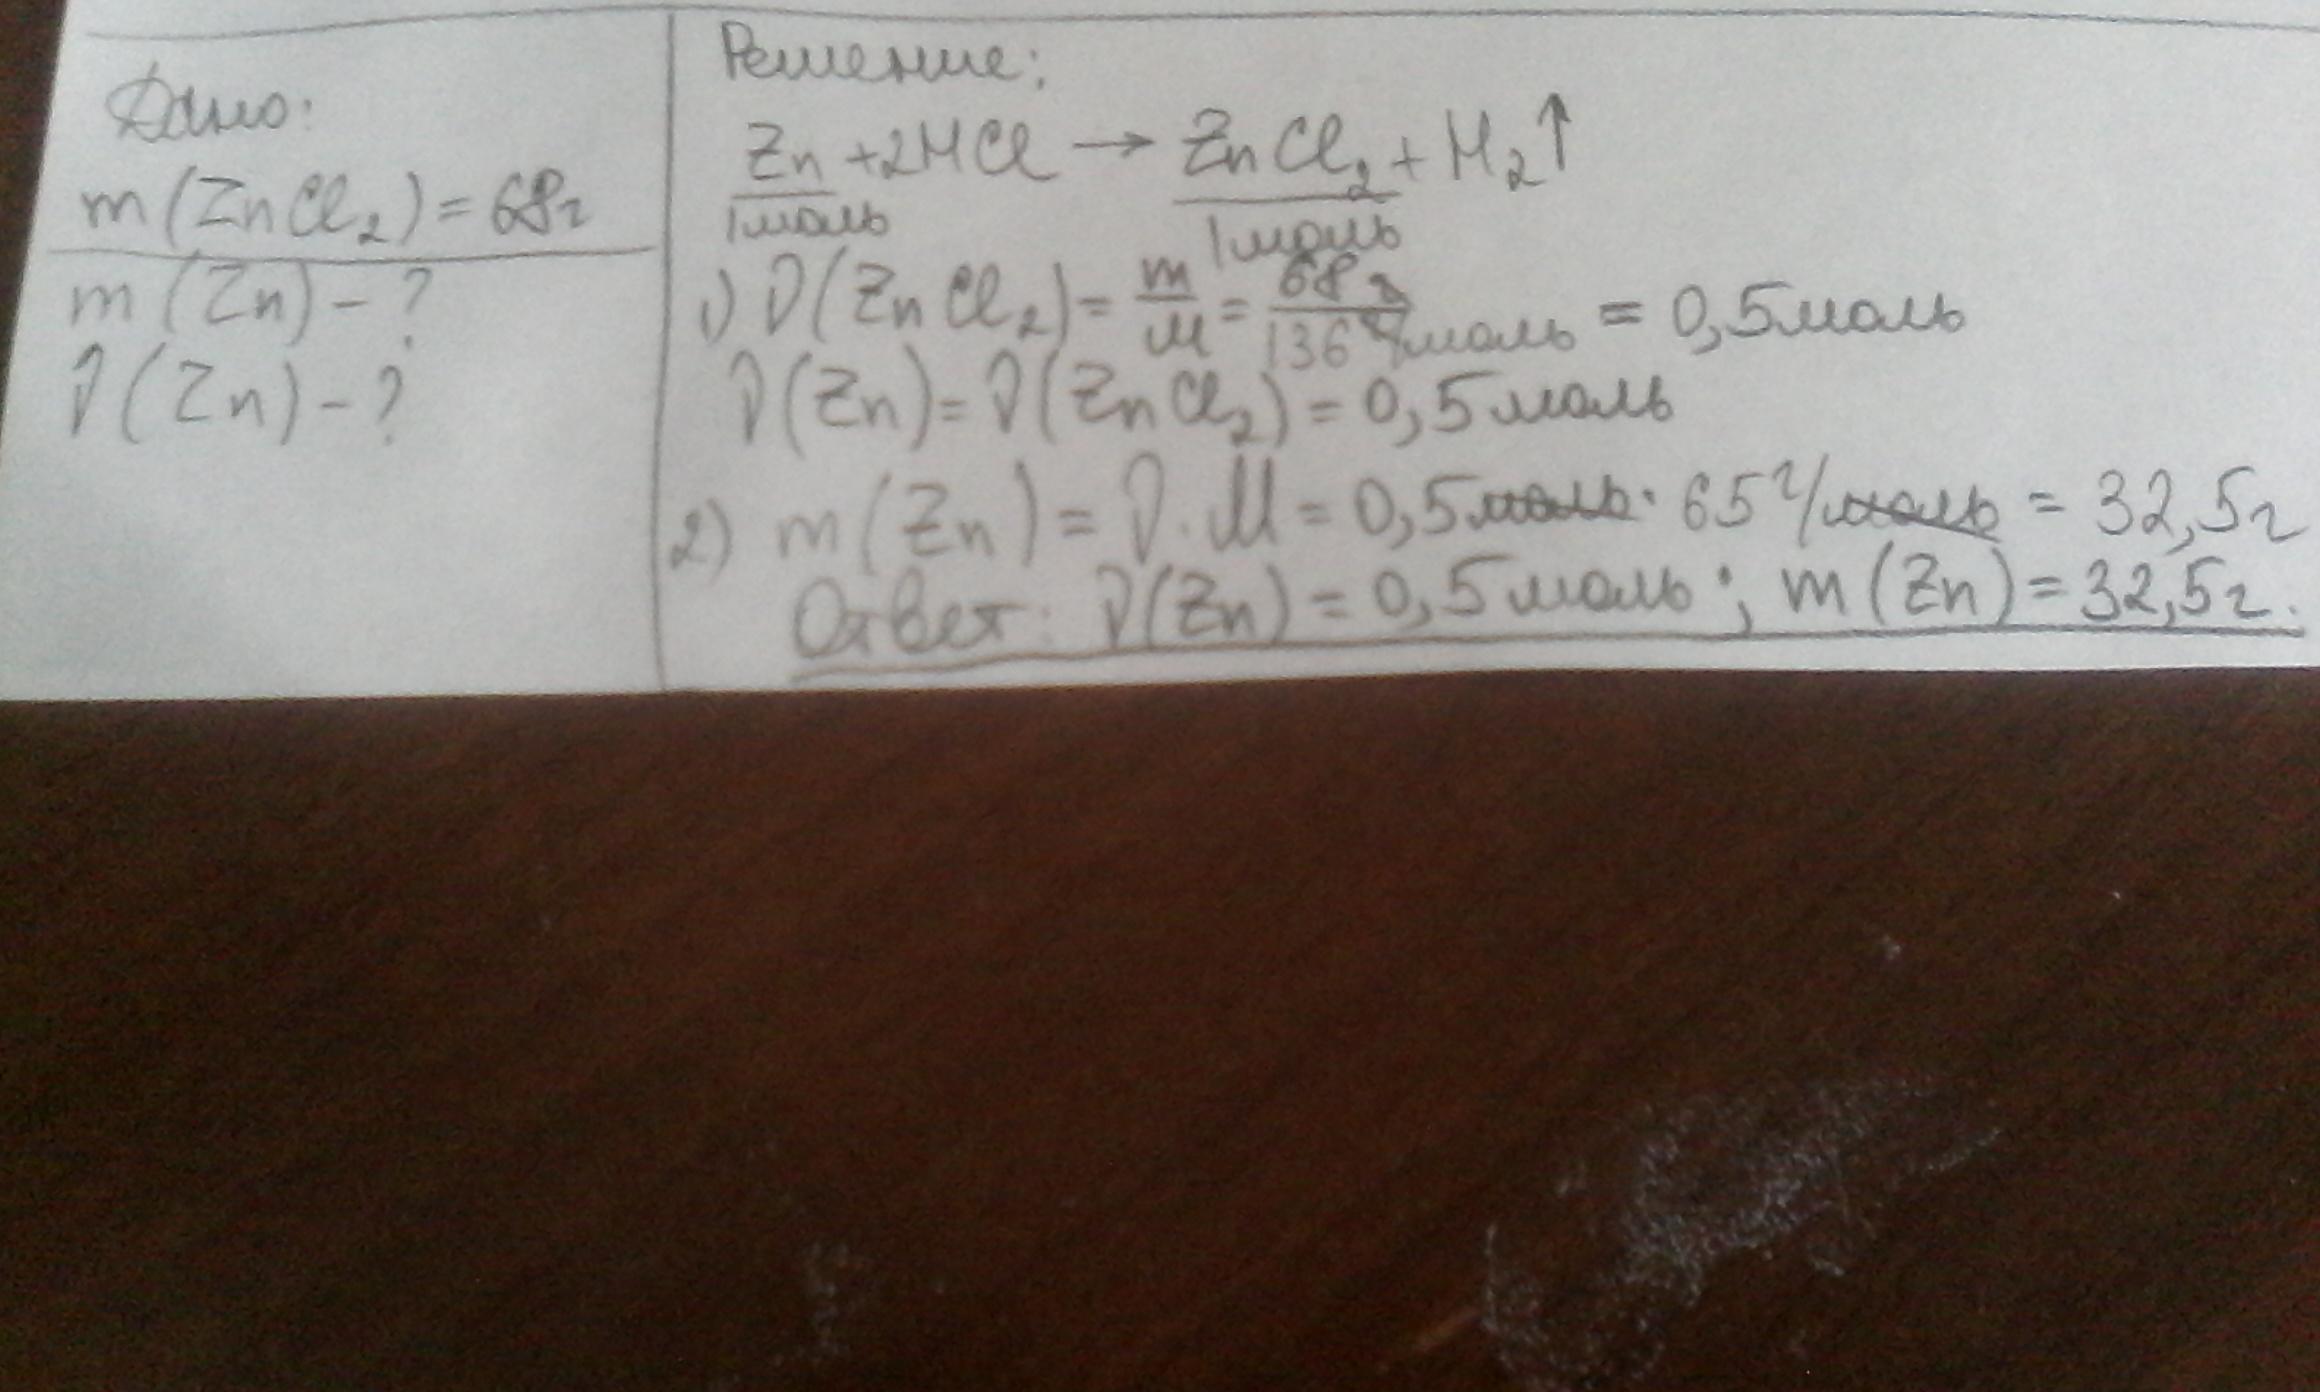 Дано:
m(ZnCl₂) = 68г
m(Zn) - ?
ν(Zn) - ?
Решение:
Zn + 2HCl → ZnCl₂ + H₂↑
1моль 1моль
1) ν(ZnCl₂) = m/M = 68г/136г/моль = 0,5моль
ν(Zn) = ν(ZnCl₂) = 0,5моль
2) m(Zn) = ν · M = 0,5моль · 65г/моль = 32,5г
Ответ: ν(Zn) = 0,5моль; m(Zn) = 32,5г.